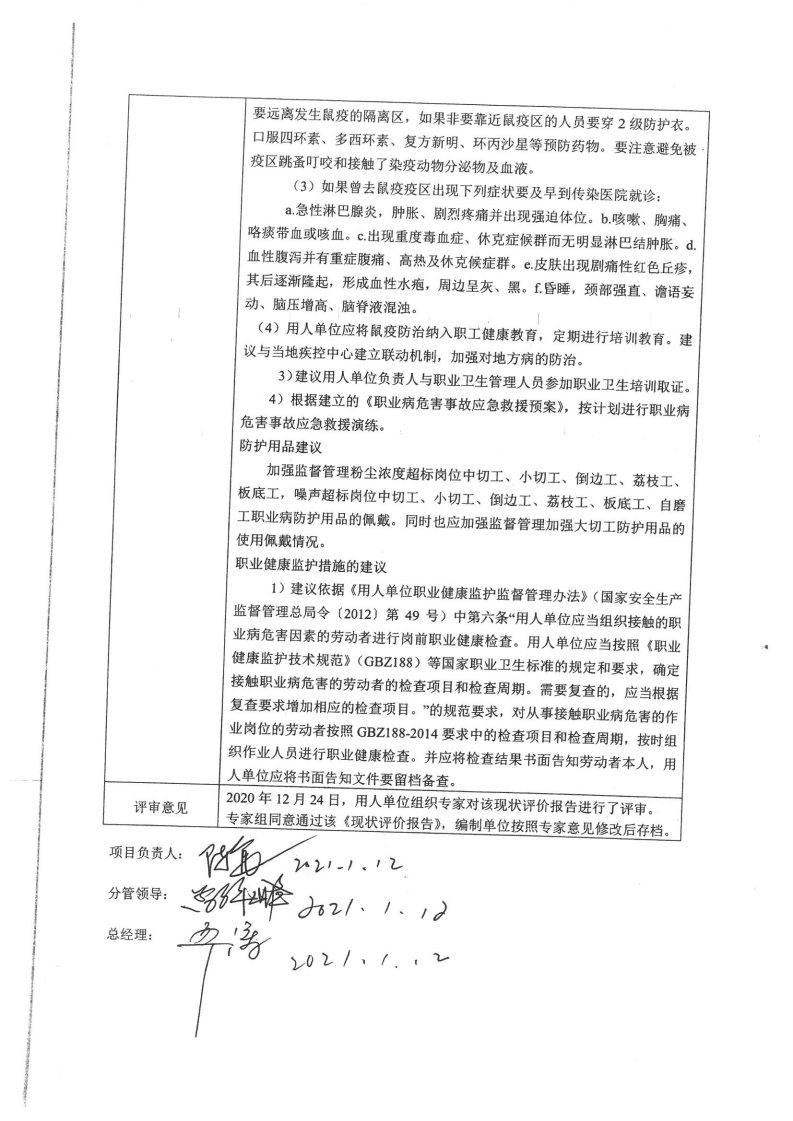 要远离发生鼠疫的隔离区，如果非要靠近鼠疫区的人员要穿 2 级防护衣。
口服四环素、多西环素、复方新明、环丙沙星等预防药物。要注意避免被
疫区跳蚤叮咬和接触了染疫动物分泌物及血液。
（3）如果曾去鼠疫疫区出现下列症状要及早到传染医院就诊：
a.急性淋巴腺炎，肿胀、剧烈疼痛并出现强迫体位。b.咳嗽、胸痛、
咯痰带血或咳血。c.出现重度毒血症、休克症候群而无明显淋巴结肿胀。d.
血性腹泻并有重症腹痛、高热及休克候症群。e.皮肤出现剧痛性红色丘疹，
其后逐渐隆起，形成血性水疱，周边呈灰、黑。f.昏睡，颈部强直、谵语妄
动、脑压增高、脑脊液混浊。
（4）用人单位应将鼠疫防治纳入职工健康教育，定期进行培训教育。建
议与当地疾控中心建立联动机制，加强对地方病的防治。
3）建议用人单位负责人与职业卫生管理人员参加职业卫生培训取证。
4）根据建立的《职业病危害事故应急救援预案》，按计划进行职业病
危害事故应急救援演练。
防护用品建议
加强监督管理粉尘浓度超标岗位中切工、小切工、倒边工、荔枝工、
板底工，噪声超标岗位中切工、小切工、倒边工、荔枝工、板底工、自磨
工职业病防护用品的佩戴。同时也应加强监督管理加强大切工防护用品的
使用佩戴情况。
职业健康监护措施的建议
1）建议依据《用人单位职业健康监护监督管理办法》（国家安全生产
监督管理总局令〔2012〕第 49 号）中第六条“用人单位应当组织接触的职
业病危害因素的劳动者进行岗前职业健康检查。用人单位应当按照《职业
健康监护技术规范》（GBZ188）等国家职业卫生标准的规定和要求，确定
接触职业病危害的劳动者的检查项目和检查周期。需要复查的，应当根据
复查要求增加相应的检查项目。”的规范要求，对从事接触职业病危害的作
业岗位的劳动者按照 GBZ188-2014 要求中的检查项目和检查周期，按时组
织作业人员进行职业健康检查。并应将检查结果书面告知劳动者本人，用
人单位应将书面告知文件要留档备查。
评审意见
2020 年 12 月 24 日，用人单位组织专家对该现状评价报告进行了评审。
专家组同意通过该《现状评价报告》，编制单位按照专家意见修改后存档。
项目负责人： 2021.1.12
分管领导： 2021.1.12
总经理： 2021.1.12